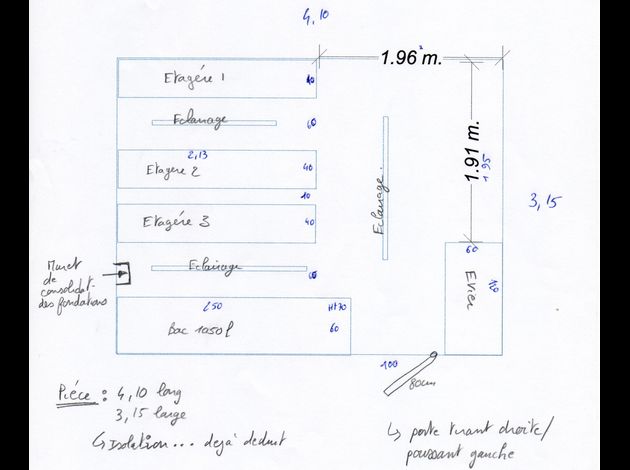 4,10
1.96 m.
Etagére 1
40
Eclairage
60
1.91 m.
1 95
2,13
Etagere 2
40
10
Etagére 3
40
Eclairage.
3,15
60
Evier
Muret
de
consolidat.
des fondations
Eclairage
60
250
Ht 70
Bac 1050 l
60
100
80cm
Piéce : 4,10 long
3,15 large
↳ Isolation... dejà deduit
↳ porte tirant droite/
poussant gauche